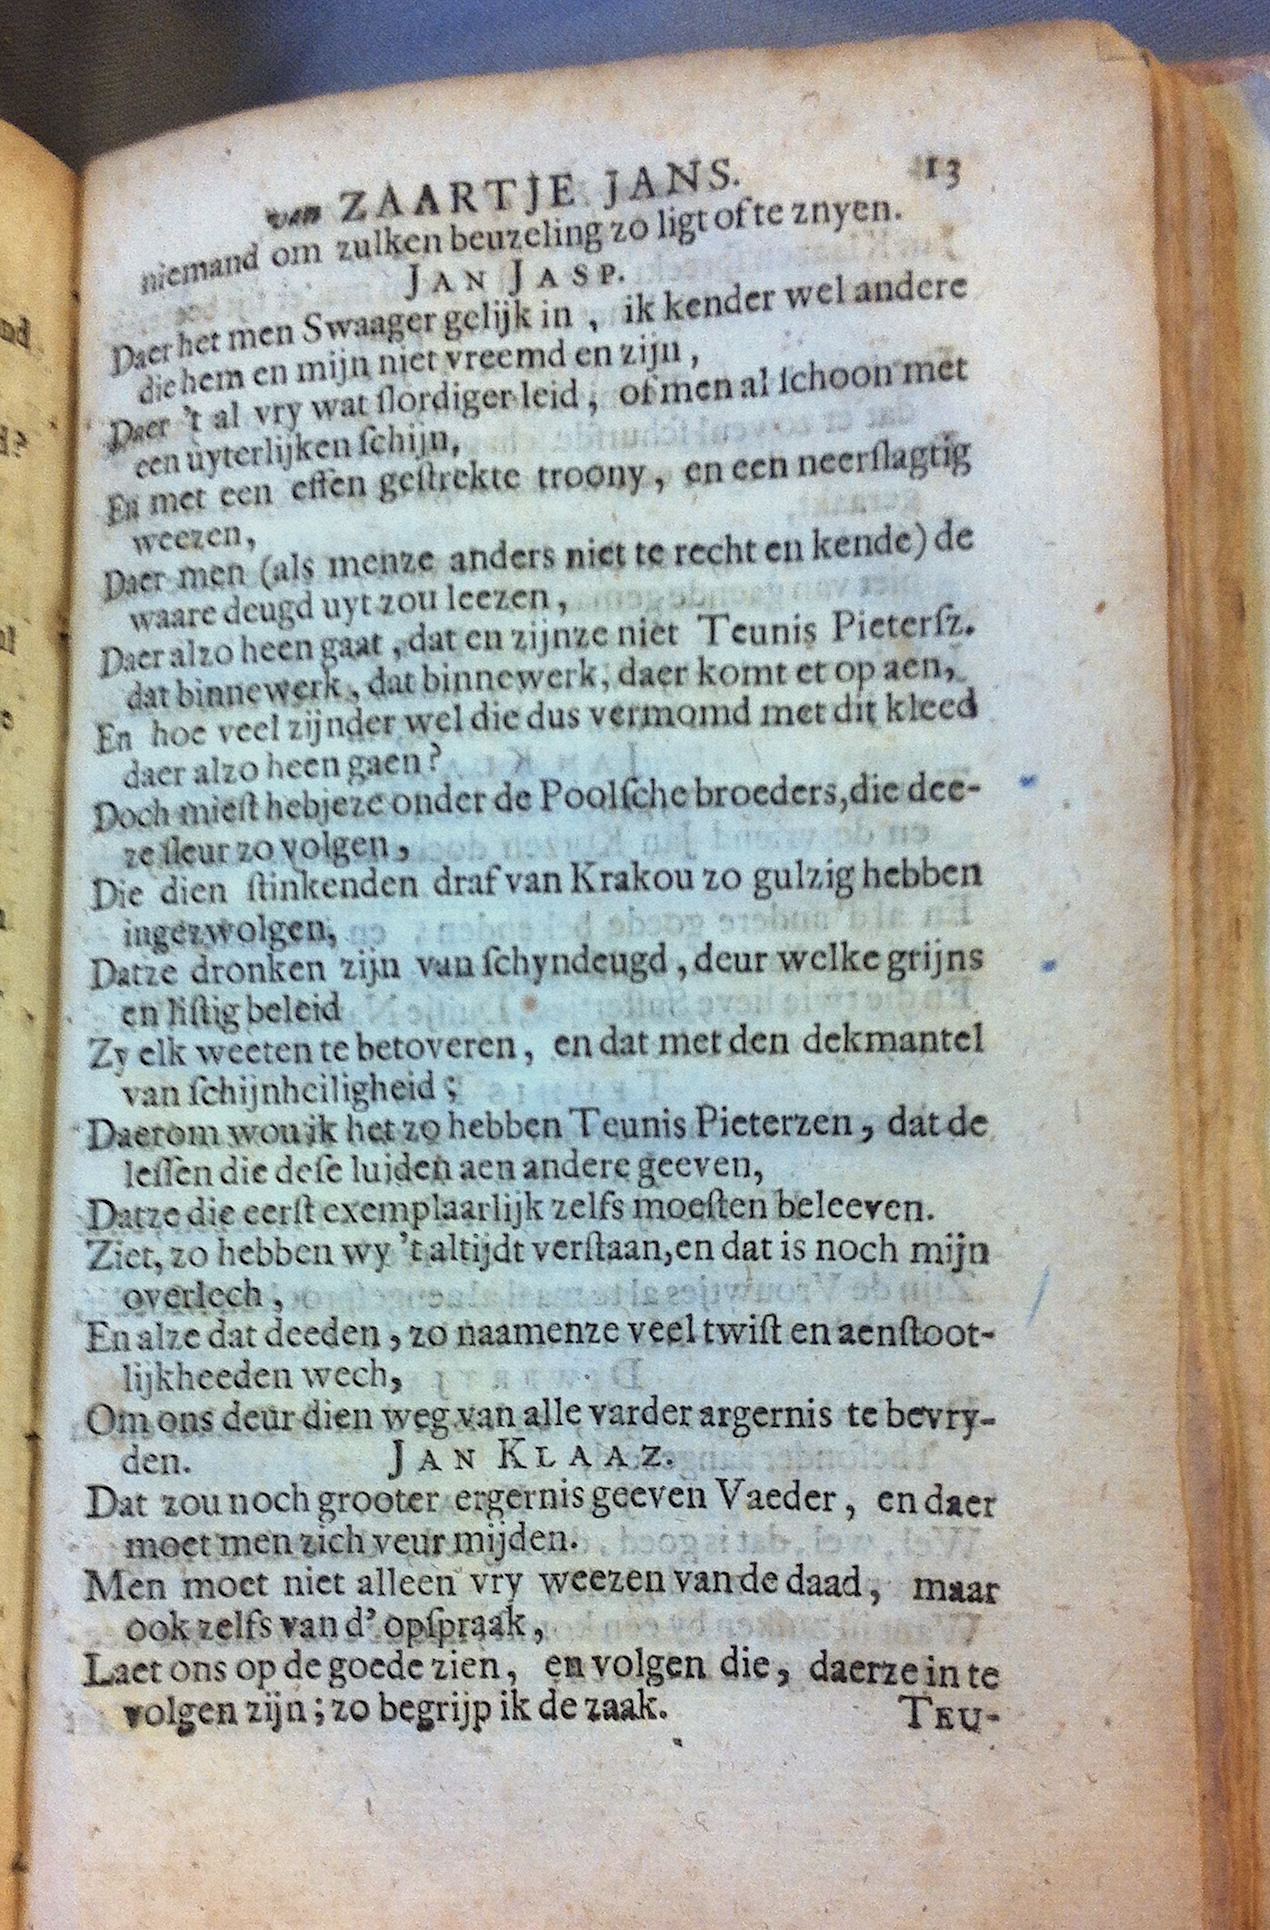 van ZAARTJE JANS. 13
niemand om zulken beuzeling zo ligt of te znyen.
JAN JASP.
Daer het men Swaager gelijk in , ik kender wel andere
die hem en mijn niet vreemd en zijn ,
Daer 't al vry wat ſlordiger leid , of men al ſchoon met
een uyterlijken ſchijn,
En met een effen geſtrekte troony , en een neerſlagtig
weezen,
Daer men (als menze anders niet te recht en kende) de
waare deugd uyt zou leezen ,
Daer alzo heen gaat , dat en zijnze niet Teunis Pieterſz.
dat binnewerk , dat binnewerk, daer komt et op aen,
En hoe veel zijnder wel die dus vermomd met dit kleed
daer alzo heen gaen?
Doch mieſt hebjeze onder de Poolſche broeders, die dee-
ze ſleur zo volgen ,
Die dien ſtinkenden draf van Krakou zo gulzig hebben
ingezwolgen,
Datze dronken zijn van ſchyndeugd , deur welke grijns
en liſtig beleid
Zy elk weeten te betoveren , en dat met den dekmantel
van ſchijnheiligheid ;
Daerom wou ik het zo hebben Teunis Pieterzen , dat de
leſſen die deſe luiden aen andere geeven,
Datze die eerſt exemplaarlijk zelfs moeſten beleeven.
Ziet, zo hebben wy 't altijdt verſtaan, en dat is noch mijn
overlech ,
En alze dat deeden , zo naamenze veel twiſt en aenſtoot-
lijkheeden wech,
Om ons deur dien weg van alle varder argernis te bevry-
den. JAN KLAAZ.
Dat zou noch grooter ergernis geeven Vaeder , en daer
moet men zich veur mijden.
Men moet niet alleen vry weezen van de daad , maar
ook zelfs van d' opſpraak ,
Laet ons op de goede zien , en volgen die , daerze in te
volgen zijn ; zo begrijp ik de zaak. TEU-